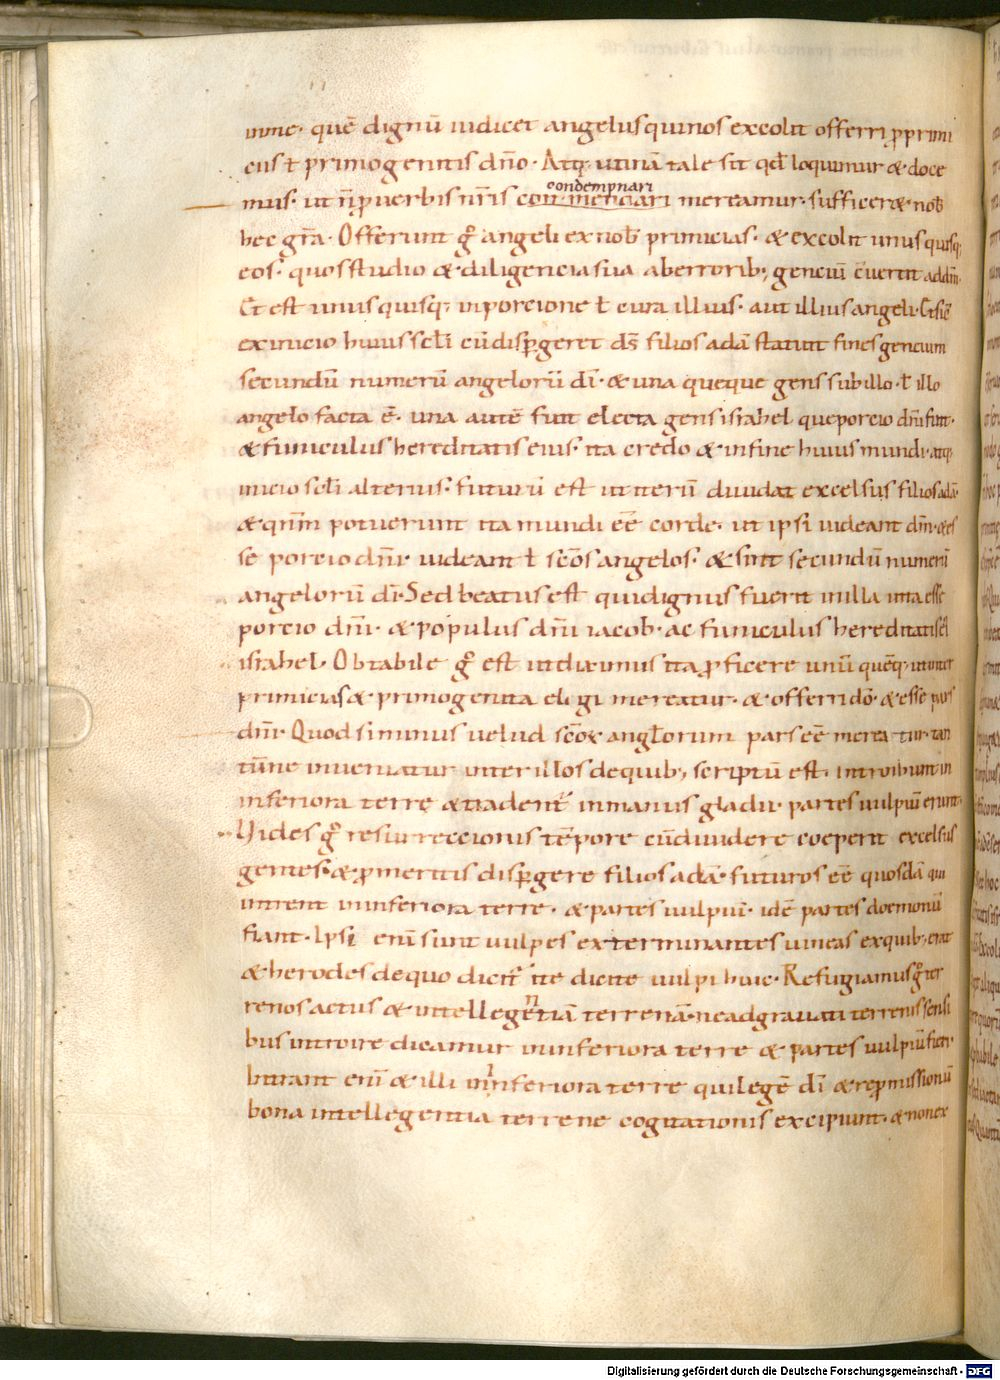 inme· quē dignū iudicet angelus qui nos excolit offerri p primi
ciis ł primogenitis dn̄o· Atq; utinā tale sit qd̄ loquimur & doce
condempnari
mus· ut n̄ p uerbis nr̄is mereamur· sufficer& nob
hec gr̄a· Offerunt g̊ angeli ex nob primicias· & excolit unus quisq;
eos· quos studio & diligencia sua ab erroribꝫ genciū c̄uertit ad dm̄·
Et est unus quisq; in porcione ł cura illius· aut illius angeli· Et sic̄
ex inicio huius scl̄i cū disp̄geret ds̄ filios adā statuit fines gencium
secundū numerū angelorū dī· & una queque gens sub illo· ł illo
angelo facta ē· una autē fuit electa gens israhel que porcio dn̄i fuit·
& funiculus hereditatis eius· ita credo & in fine huius mundi· atq;
inicio scl̄i alterius· futurū est ut iterū diuidat excelsus filios adā·
& qm̄ potuerunt ita mundi eē corde· ut ipsi uideant dm̄· & es
se porcio dn̄i· uideant ł scōs angelos· & sint secundū numerū
angelorū dī· Sed beatus est qui dignus fuerit in illa uita esse
porcio dn̄i· & populus dn̄i iacob· ac funiculus hereditatis ei
israhel· Obtabile g̊ est ut diximus ita p ficere unū quēq; ut inter
primicias & primogenita eligi mereatur· & offerri dō· & esse pars
dn̄i· Quod si minus uelud scō℞ angl̄orum pars eē mereatur· tan
tūne inueniatur inter illos de quibꝫ scriptū est· Introibunt in
inferiora terre & tradent̄ in manus gladii· partes uulpiū erunt·
Uides g̊ resurreccionis tēpore cū diuidere coeperit excelsus
gentes· & p meritis disp̄gere filios adā· futuros eē quosdā qui
intrent in inferiora terre· & partes uulpiū· idē partes doemoniū
fiant· Ipsi enī sunt uulpes exterminantes uineas ex quibꝫ erat
& herodes de quo dicit̄ ite dicite uulpi huic· Refugiamus g̊ ter
renos actus & intellegentiā terrenā· ne adgrauati terrenis sensi
bus introire dicamur in inferiora terre & partes uulpiū fieri·
Intrant enī & illi in inferiora terre qui legē dī & repmissionū
bona intellegentia terrene cogitationis excipiunt· & non ex
Digitalisierung gefördert durch die Deutsche Forschungsgemeinschaft - DFG